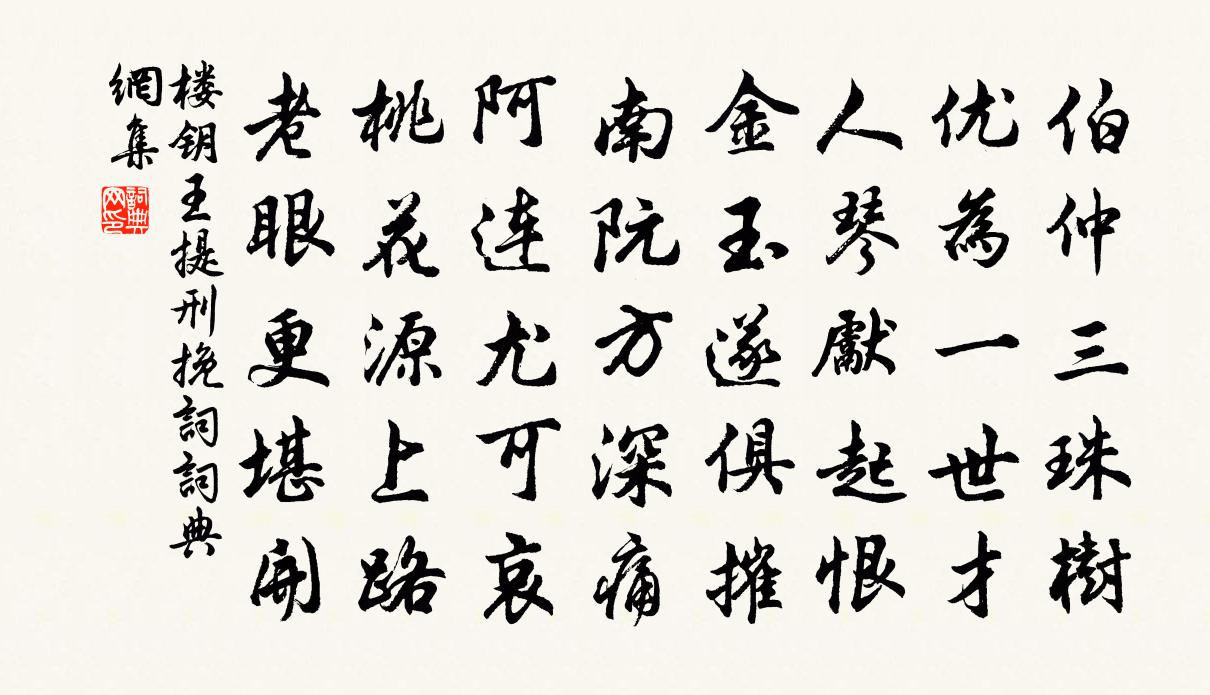 伯仲三珠樹
优為一世才
人琴獻起恨
金玉遂俱摧
南阮方深痛
阿連尤可哀
桃花源上路
老眼更堪開
楼钥王提刑挽詞詞典
網集
詞典
网印